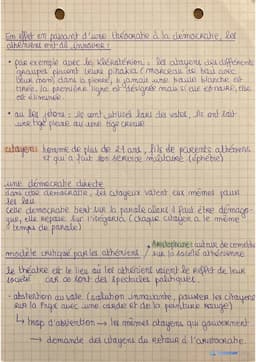 En effet en passant d'une théocratie à la démocratie, les
athéniens ont dû innover :
• par exemple avec le kleroterion : les citoyens des différents
groupes placent leurs pinakia (morceau de bois avec
leur nom) dans la pierre, si jamais une boule blanche est
tirée, la première ligne est désignée mais si elle est noire, elle
est éliminée.
• ou les jetons : ils sont utilisés lors des votes, ils ont soit
une tige pleine ou une tige creuse
citoyens homme de plus de 21 ans, fils de parents athéniens
et qui a fait son service militaire (éphébie)
une démocratie directe
dans cette démocratie, les citoyens votent eux mêmes pour
les lois
cette démocratie sert sur la parole alors il faut être démago-
gue, elle repose sur l'iségoria (chaque citoyen a le même
temps de parole)
Aristophane : auteur de comédie
modèle critiqué par les athéniens sur la société athénienne
le théâtre est le lieu où les athéniens voient le reflet de leur
société car ce sont des spectacles politiques.
- abstention au vote (solution innovante, pousser les citoyens
sur la Pnyx avec une corde et de la peinture rouge)
↳ trop d'abstention → les mêmes citoyens qui gouvernent
→ demande des citoyens du retour à l'aristocratie.